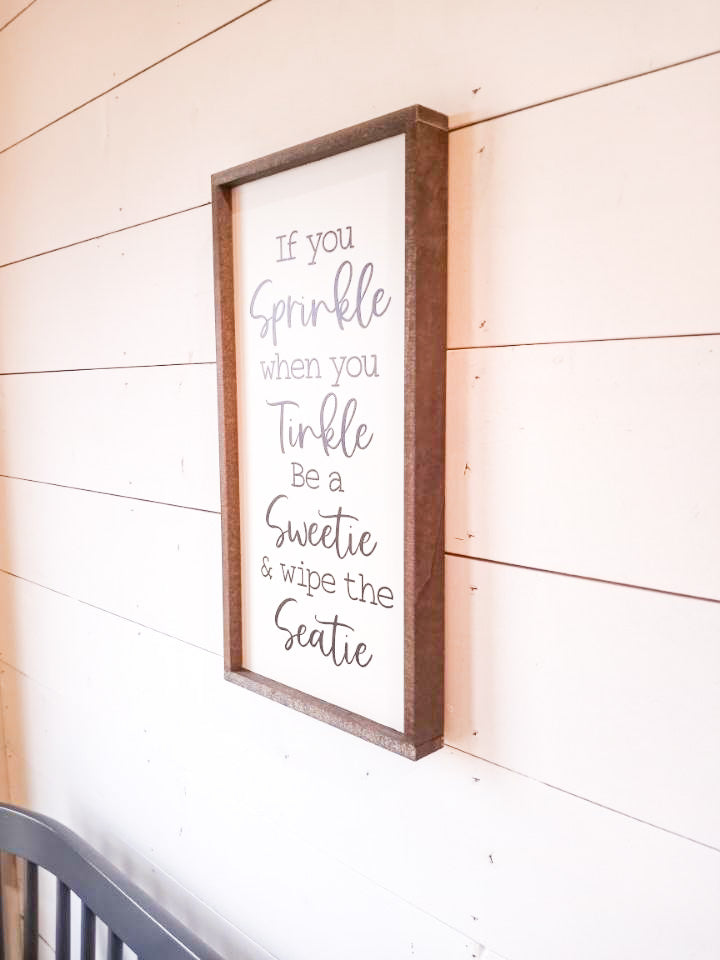 If you
Sprinkle
when you
Tinkle
Be a
Sweetie
& wipe the
Seatie